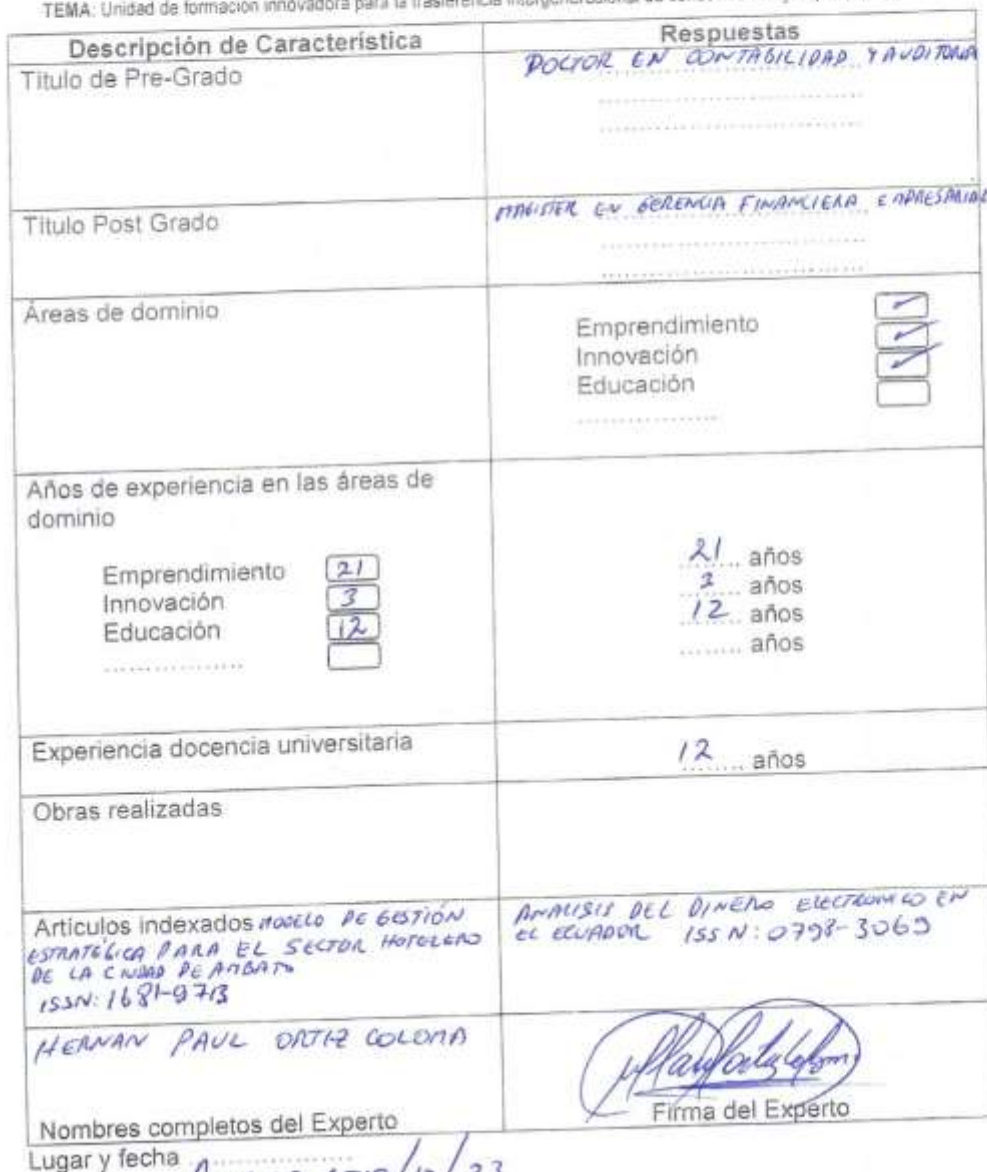 TEMA: Unidad de formación innovadora para la trasferencia intergeneracional de
Descripción de Característica
Respuestas
Título de Pre-Grado
DOCTOR EN CONTABILIDAD Y AUDITORIA
Título Post Grado
MAGISTER EN GERENCIA FINANCIERA EMPRESARIAL
Áreas de dominio
Emprendimiento
Innovación
Educación
Años de experiencia en las áreas de
dominio
Emprendimiento 21
Innovación 3
Educación 12
21 años
3 años
12 años
años
Experiencia docencia universitaria
12 años
Obras realizadas
Artículos indexados MODELO DE GESTIÓN
ESTRATÉGICA PARA EL SECTOR HOTELERO
DE LA CIUDAD DE AMBATO
ISSN: 1681-9713
ANALISIS DEL DINERO ELECTRONICO EN
EL ECUADOR ISSN: 0798-3069
HERNAN PAUL ORTIZ COLOMA
Nombres completos del Experto
Firma del Experto
Lugar y fecha